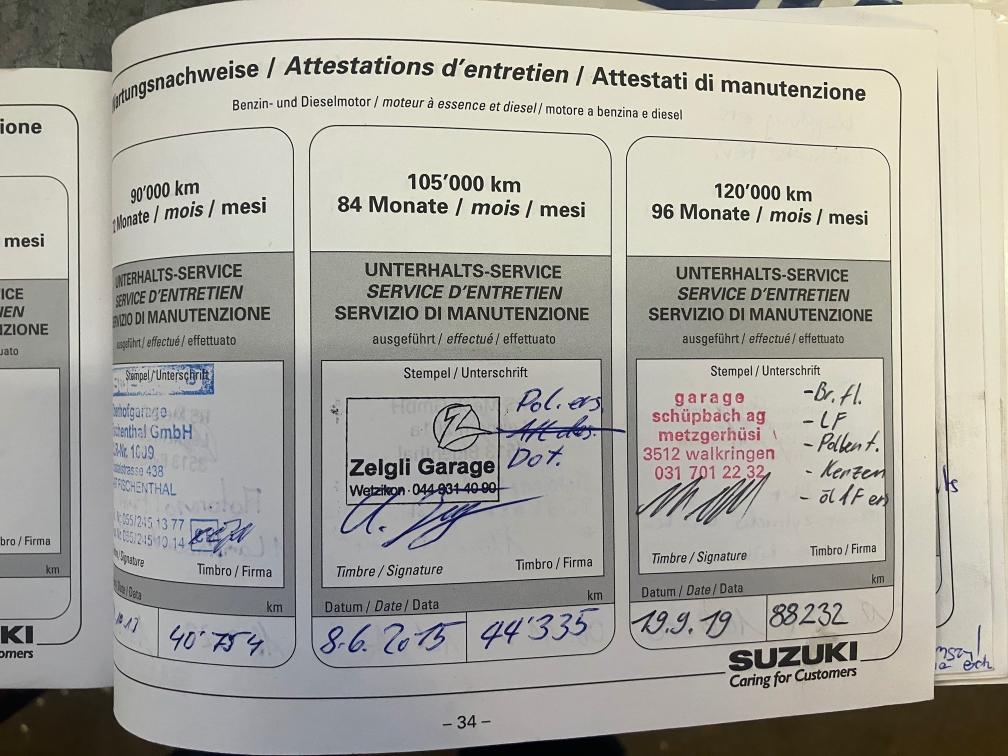 Wartungsnachweise / Attestations d'entretien / Attestati di manutenzione
Benzin- und Dieselmotor / moteur à essence et diesel / motore a benzina e diesel
ione
mesi
ICE
IEN
IZIONE
uato
bro / Firma
km
KI
omers
90'000 km
Monate / mois / mesi
UNTERHALTS-SERVICE
SERVICE D'ENTRETIEN
SERVIZIO DI MANUTENZIONE
ausgeführt / effectué / effettuato
Stempel / Unterschrift
erhofgarage
schenthal GmbH
strasse 438
FISCHENTHAL
055/245 13 77
055/245 10 14
Signature
Timbro / Firma
Date / Data
km
40'754
105'000 km
84 Monate / mois / mesi
UNTERHALTS-SERVICE
SERVICE D'ENTRETIEN
SERVIZIO DI MANUTENZIONE
ausgeführt / effectué / effettuato
Stempel / Unterschrift
Pol. ers.
Dot.
Zelgli Garage
Wetzikon · 044 931 40 90
Timbre / Signature
Timbro / Firma
Datum / Date / Data
km
8.6.2015
44'335
120'000 km
96 Monate / mois / mesi
UNTERHALTS-SERVICE
SERVICE D'ENTRETIEN
SERVIZIO DI MANUTENZIONE
ausgeführt / effectué / effettuato
Stempel / Unterschrift
garage
schüpbach ag
metzgerhüsi
3512 walkringen
031 701 22 32
- Br. fl.
- LF
- Pollent.
- Kerzen
- öl 1F ers
Timbre / Signature
Timbro / Firma
Datum / Date / Data
km
19.9.19
88232
SUZUKI
Caring for Customers
– 34 –